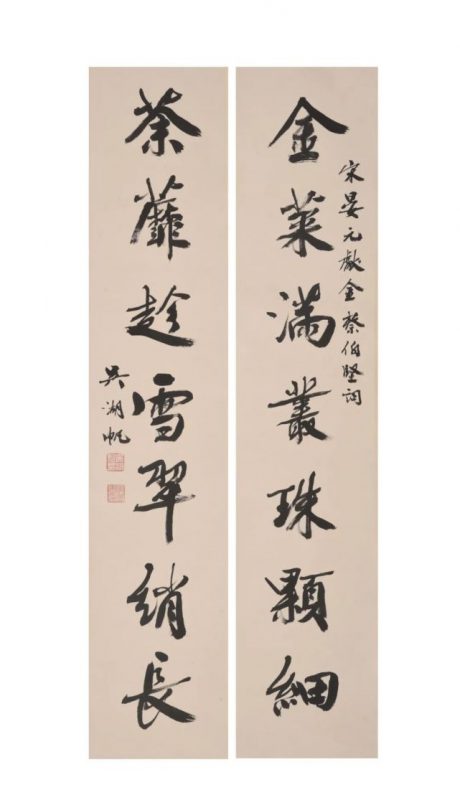 金菊滿叢珠顆細
宋晏元獻金蔡伯堅詞
荼蘼趁雪翠綃長
吳湖帆